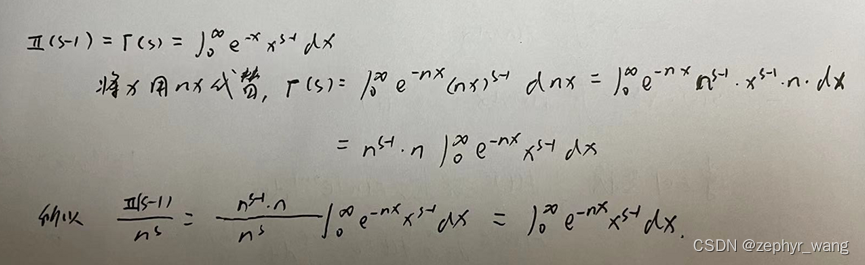 Π(s-1) = Γ(s) = ∫₀^∞ e^{-x} x^{s-1} dx
将x用nx代替, Γ(s) = ∫₀^∞ e^{-nx} (nx)^{s-1} dnx = ∫₀^∞ e^{-nx} n^{s-1}·x^{s-1}·n·dx
= n^{s-1}·n ∫₀^∞ e^{-nx} x^{s-1} dx
所以 Π(s-1)/n^s = (n^{s-1}·n)/n^s ∫₀^∞ e^{-nx} x^{s-1} dx = ∫₀^∞ e^{-nx} x^{s-1} dx.
CSDN @zephyr_wang